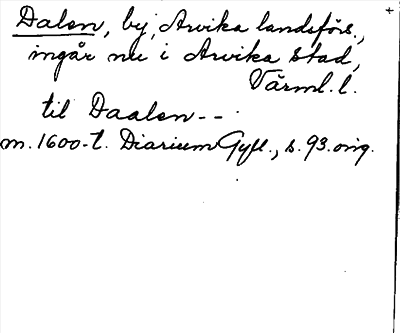 Dalen, by, Arvika landsförs.,
ingår nu i Arvika stad,
Värml. l.
til Daalen --
m. 1600-t. Diarium Gyll., s. 93. orig.